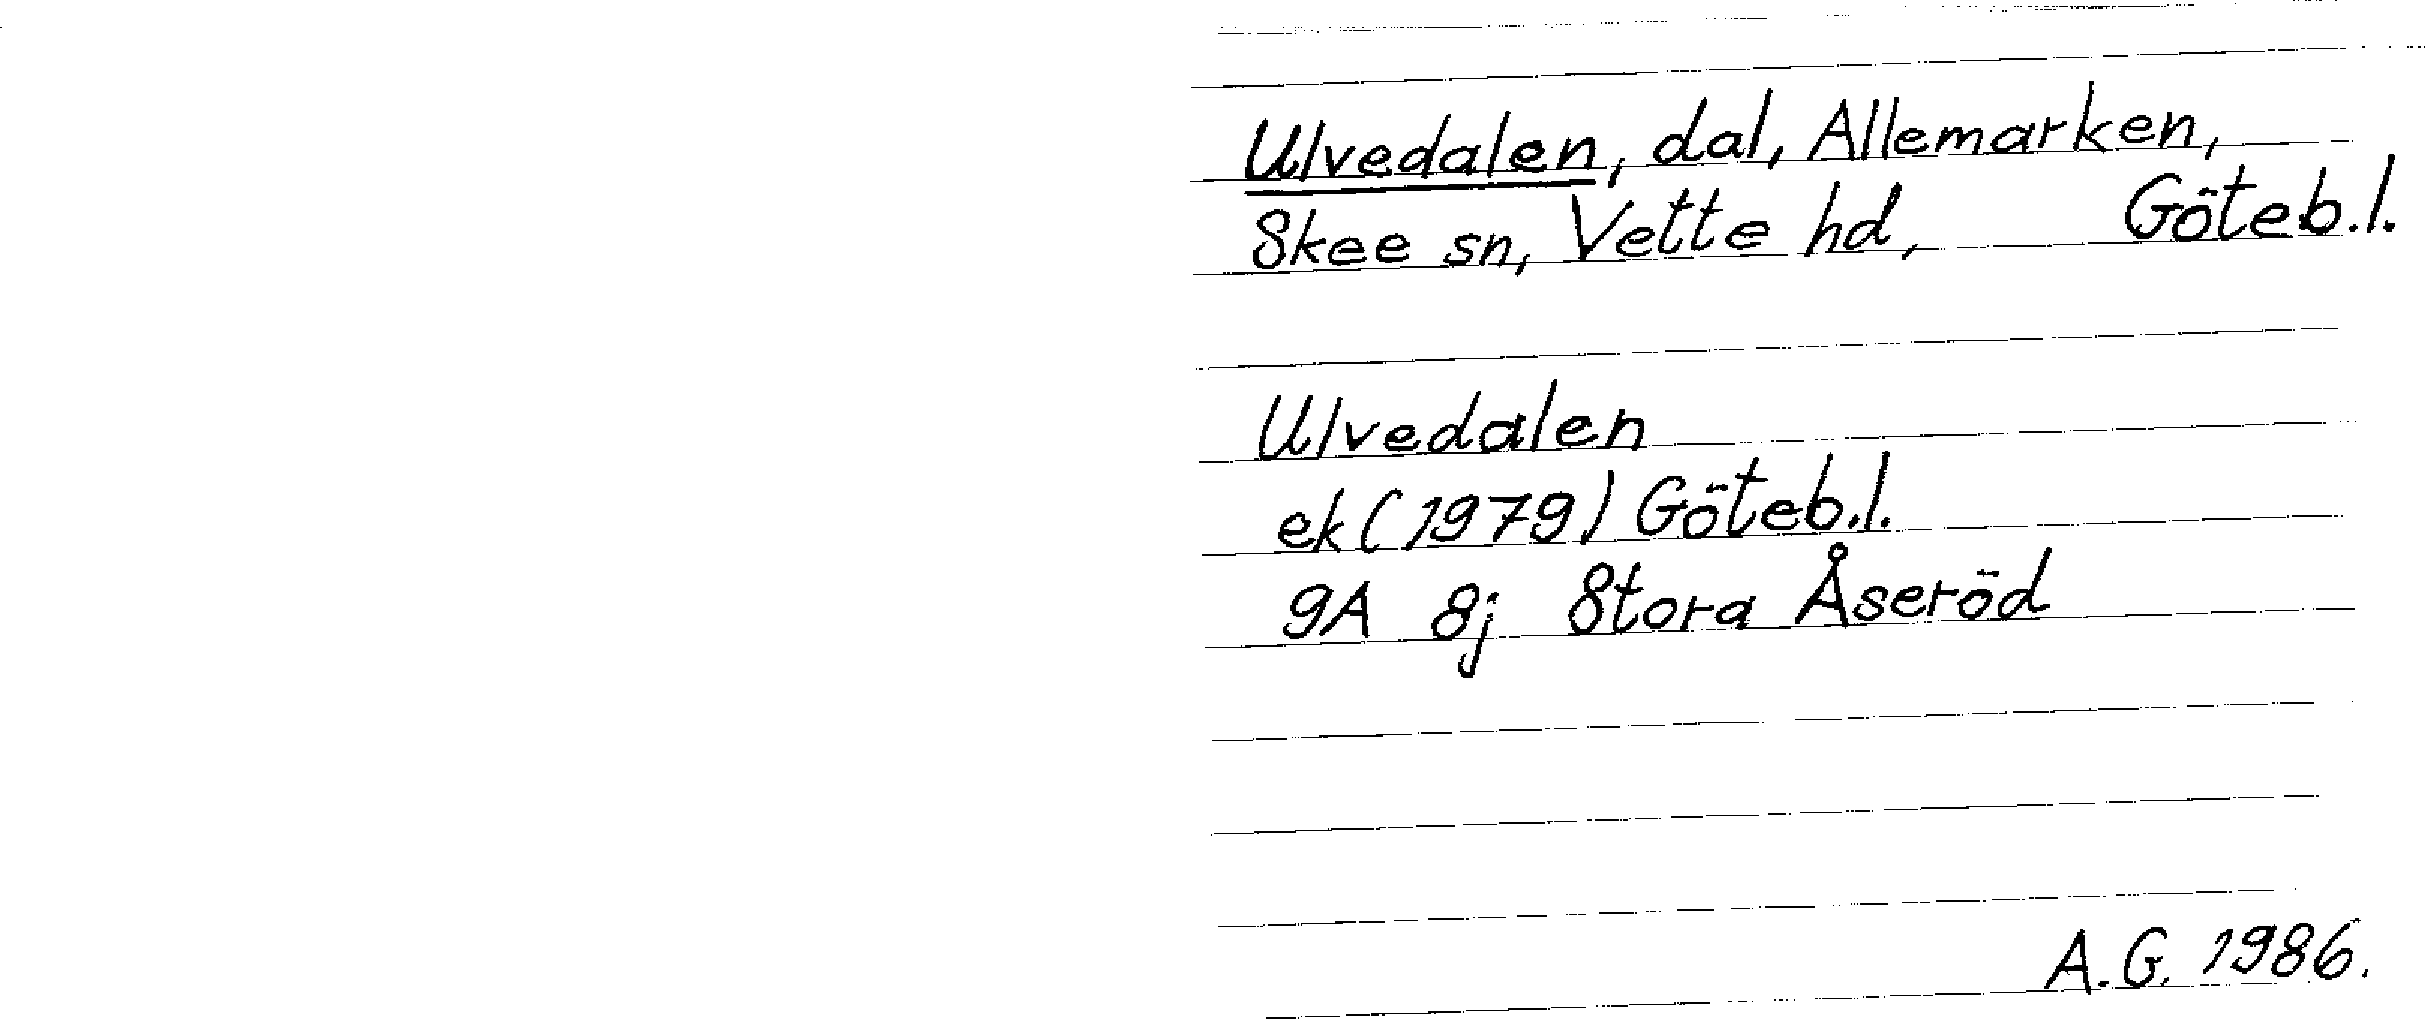 Ulvedalen, dal, Allemarken,
Skee sn, Vette hd, Göteb.l.
Ulvedalen
ek (1979) Göteb.l.
9A 8j Stora Åseröd
A.G. 1986.